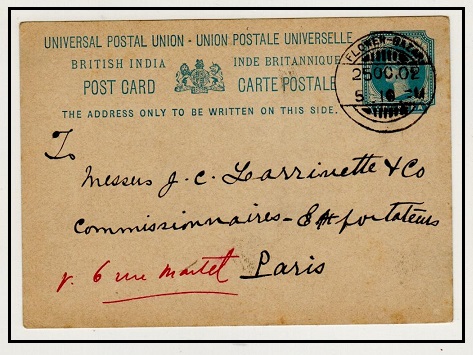 UNIVERSAL POSTAL UNION - UNION POSTALE UNIVERSELLE
BRITISH INDIA INDE BRITANNIQUE
POST CARD CARTE POSTALE
THE ADDRESS ONLY TO BE WRITTEN ON THIS SIDE.
25 OC. 02
To
Messrs J. C. Larrinette & Co
Commissionnaires - Exportateurs
6 rue Martel Paris